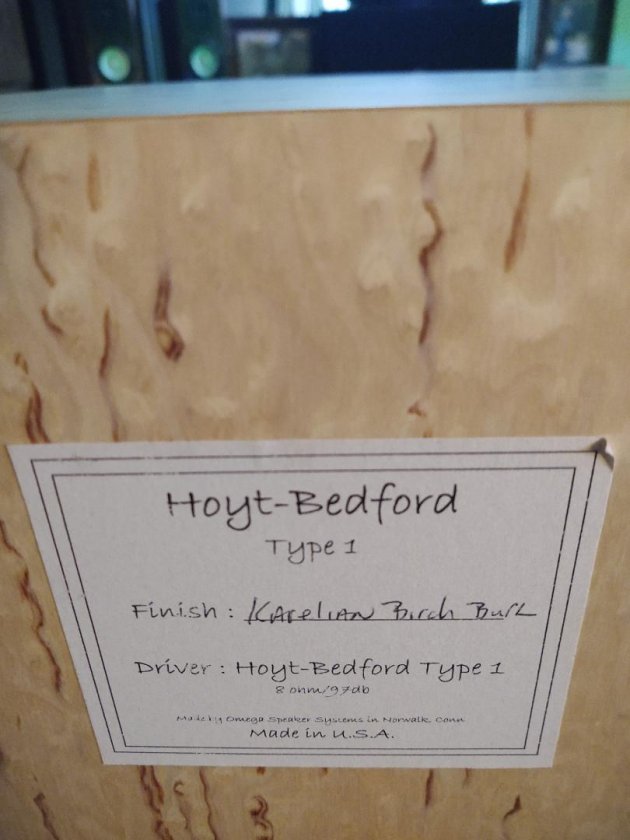 Hoyt-Bedford
Type 1
Finish : Karelian Birch Burl
Driver : Hoyt-Bedford Type 1
8 ohm/97db
Made by Omega Speaker Systems in Norwalk, Conn
Made in U.S.A.